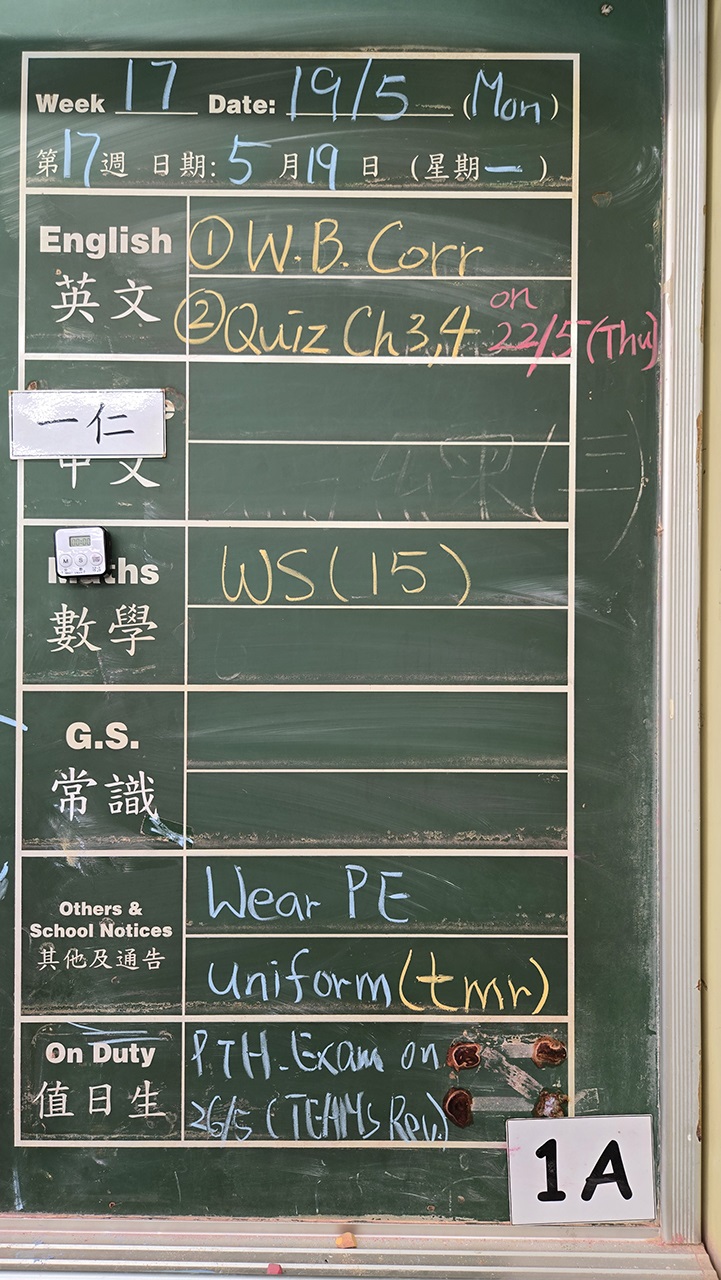 Week 17 Date: 19/5 (Mon)
第17週 日期: 5月19日 (星期一)
English ① W.B. Corr
英文 ② Quiz Ch 3,4 on 22/5 (Thu)
一仁
中文
WS (15)
數學
G.S.
常識
Others & Wear PE
School Notices
其他及通告 uniform (tmr)
On Duty PTH. Exam on
值日生 26/5 (TEAMs Rev.)
1A